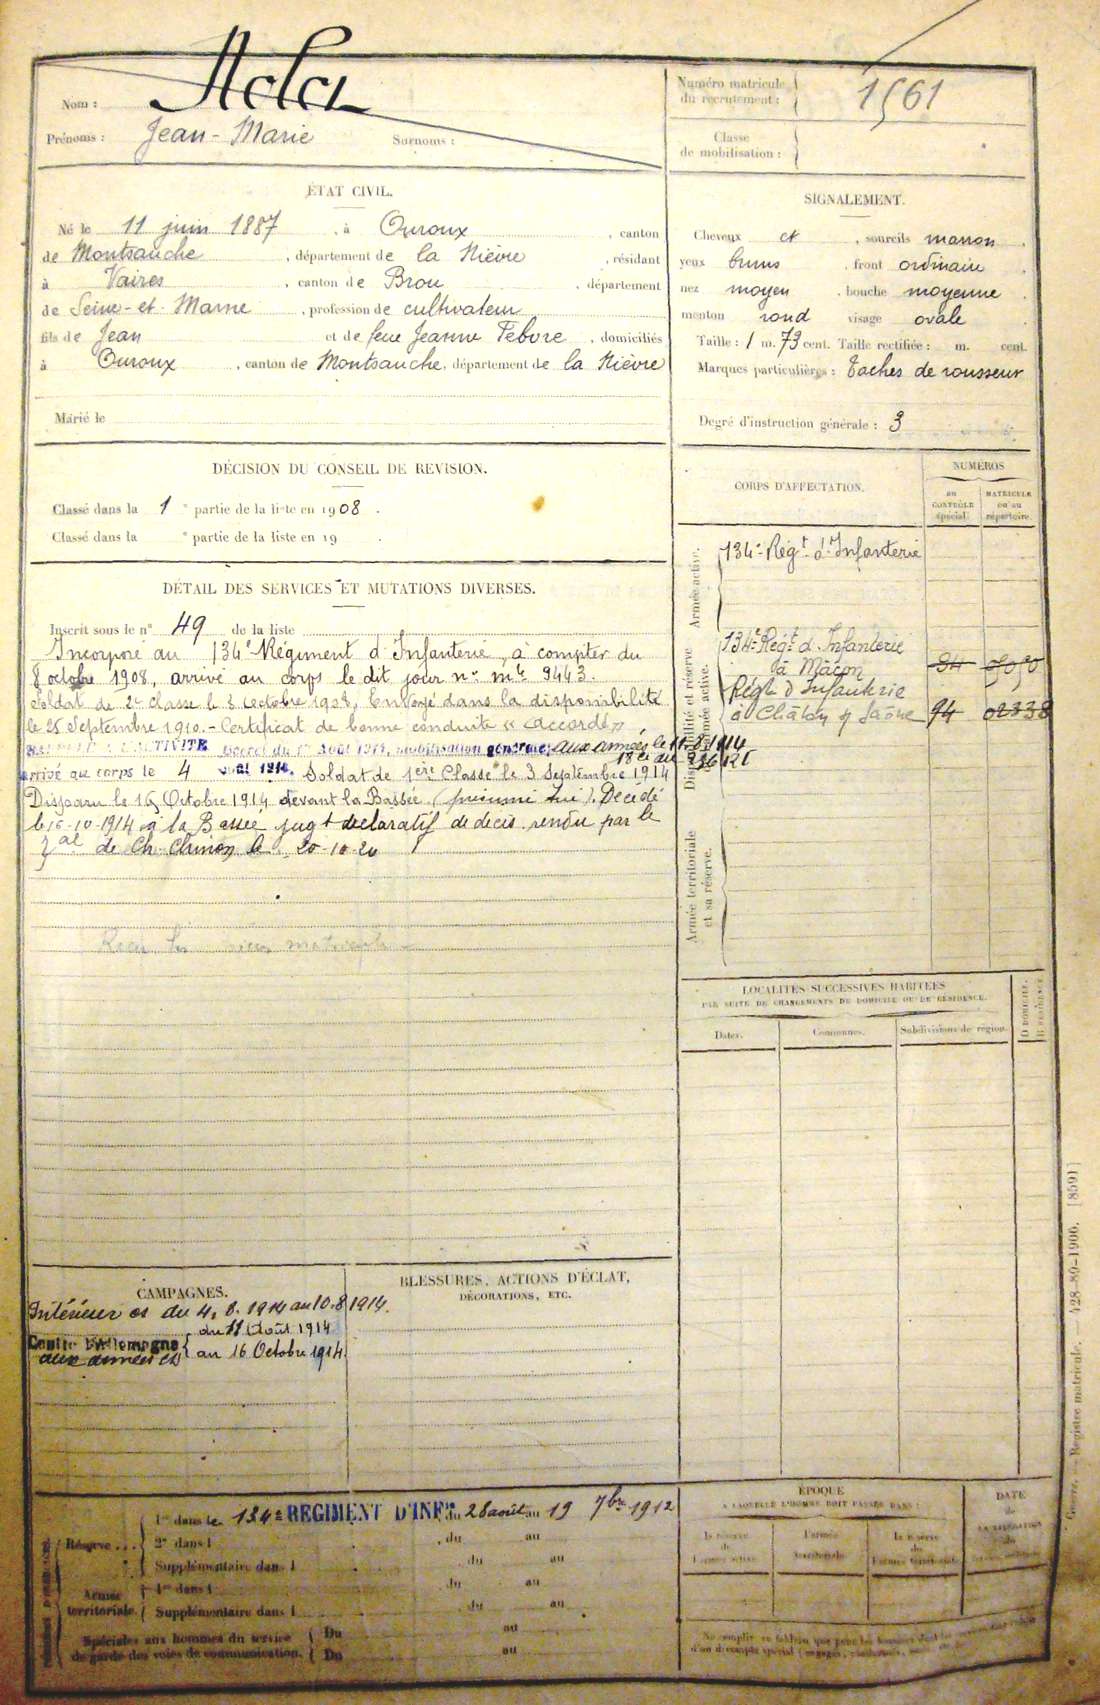 Nom :
Prénoms : Jean-Marie Surnoms :
Numéro matricule
du recrutement : 1561
Classe
de mobilisation :
ÉTAT CIVIL.
Né le 11 juin 1887, à Ouroux, canton
de Montsauche, département de la Nièvre, résidant
à Vaires, canton de Brou, département
de Seine-et-Marne, profession de cultivateur
fils de Jean et de feue Jeanne Febvre, domiciliés
à Ouroux, canton de Montsauche, département de la Nièvre
Marié le
SIGNALEMENT.
Cheveux et, sourcils marron,
yeux bruns, front ordinaire,
nez moyen, bouche moyenne
menton rond visage ovale
Taille : 1 m. 73 cent. Taille rectifiée : m. cent.
Marques particulières : Taches de rousseur
Degré d'instruction générale : 3
DÉCISION DU CONSEIL DE REVISION.
Classé dans la 1 e partie de la liste en 1908.
Classé dans la e partie de la liste en 19 .
DÉTAIL DES SERVICES ET MUTATIONS DIVERSES.
Inscrit sous le n° 49 de la liste
Incorporé au 134e Régiment d'Infanterie, à compter du
8 octobre 1908, arrivé au corps le dit jour n° mle 9443.
Soldat de 2e classe le 8 octobre 1908, Envoyé dans la disponibilité
le 25 Septembre 1910.- Certificat de bonne conduite « accordé »
L'ACTIVITE Décret du 1er Août 1914, mobilisation générale, aux armées le 11-8-1914
arrivé au corps le 4 août 1914. Soldat de 1ère Classe le 3 Septembre 1914
Disparu le 16 Octobre 1914 devant la Bassée (présumé tué). Décédé
le 16-10-1914 à la Bassée jugt déclaratif de décès rendu par le
de Ch. Chinon le 20-10-20
CORPS D'AFFECTATION.
NUMÉROS
au
CONTRÔLE
spécial.
MATRICULE
ou au
répertoire.
Armée active.
134e Régt d'Infanterie
134e Régt d'Infanterie
à Mâcon
Régt d'Infanterie
à Châlon s/ Saône 94 02338
Armée territoriale
et sa réserve.
LOCALITÉS SUCCESSIVES HABITÉES
PAR SUITE DE CHANGEMENTS DE DOMICILE OU DE RÉSIDENCE.
Dates.
Communes.
Subdivisions de région.
D DOMICILE.
R RÉSIDENCE.
CAMPAGNES.
Intérieur cs du 4. 8. 1914 au 10-8 1914.
Contre l'Allemagne du 11 Août 1914
aux armées cs au 16 Octobre 1914
BLESSURES, ACTIONS D'ÉCLAT,
DÉCORATIONS, ETC.
Réserve...
1re dans le 134e REGIMENT D'INFie du 28 août au 19 7bre 1912
2e dans l du au
Supplémentaire dans l du au
Armée
territoriale.
1re dans l du au
Supplémentaire dans l du au
Spéciales aux hommes du service
de garde des voies de communication.
Du au
Du au
ÉPOQUE
A LAQUELLE L'HOMME DOIT PASSER DANS :
la réserve
de
l'armée active.
l'armée
territoriale.
la réserve
de
l'armée territoriale.
DATE
de
LA LIBÉRATION
du
Guerre. — Registre matricule. — 428-89-1906. [8591]